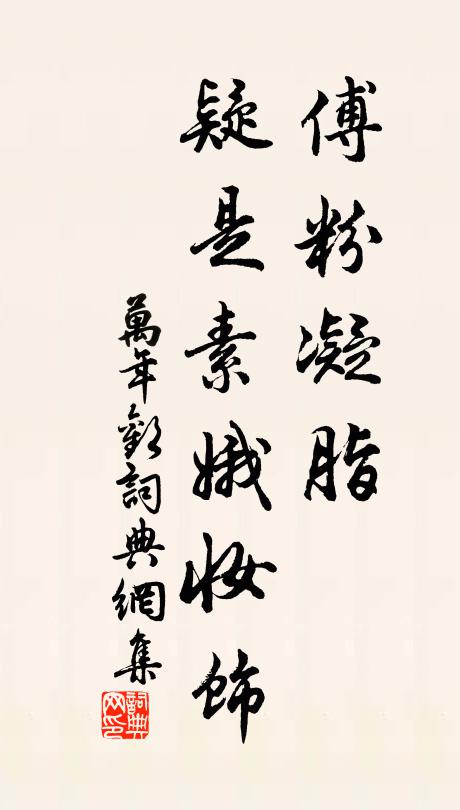 傅粉凝脂
疑是素娥妆飾
萬年歡詞典網集
詞典网印